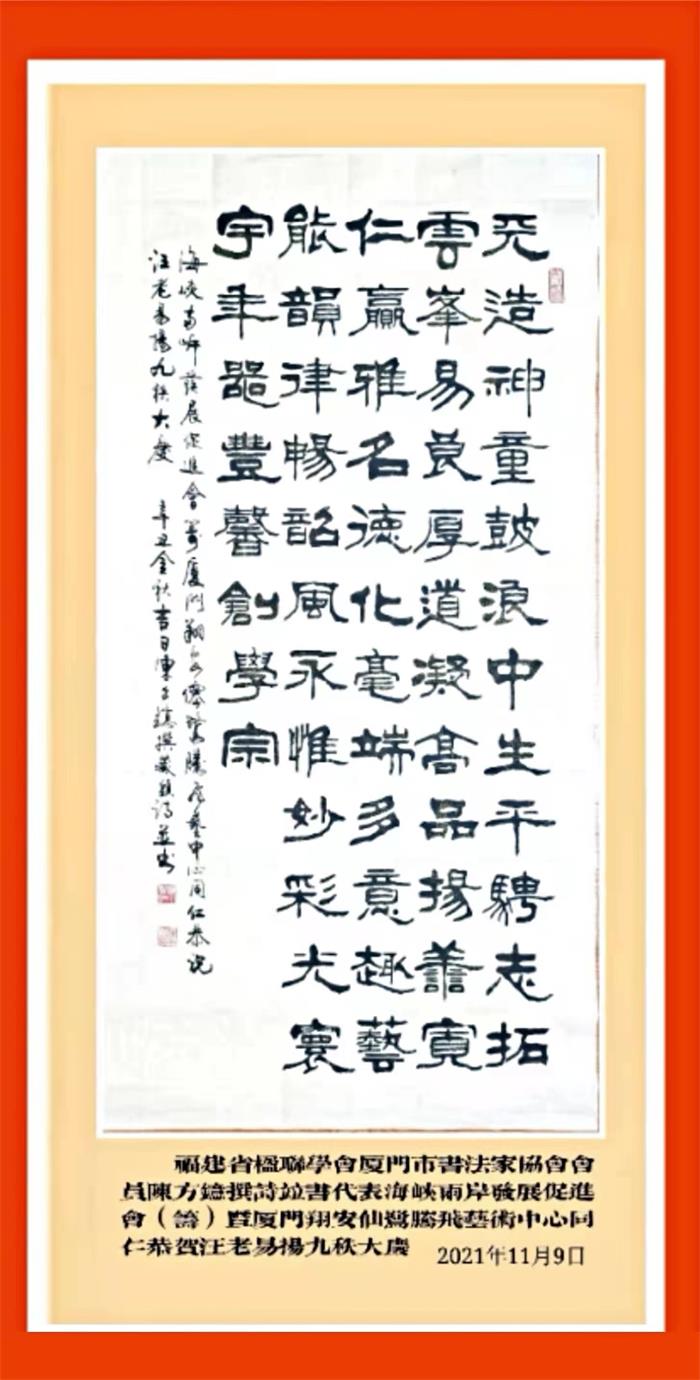 天造神童鼓浪中生平騁志拓
雲峯易良厚道凝高品揚善寬
仁贏雅名德化毫端多意趣藝
能韻律暢韶風永惟妙彩光寰
宇年器豐馨創學宗
海峽両岸發展促進會籌厦門翔安僊鷺騰飛藝中心同仁恭祝
汪老易揚九秩大慶 辛丑金秋吉日陳方撰藏頭詩並书
福建省楹聯學會厦門市書法家協會會
員陳方撰詩竝書代表海峽兩岸發展促進
會（籌）暨厦門翔安仙鷺騰飛藝術中心同
仁恭賀汪老易揚九秩大慶 2021年11月9日